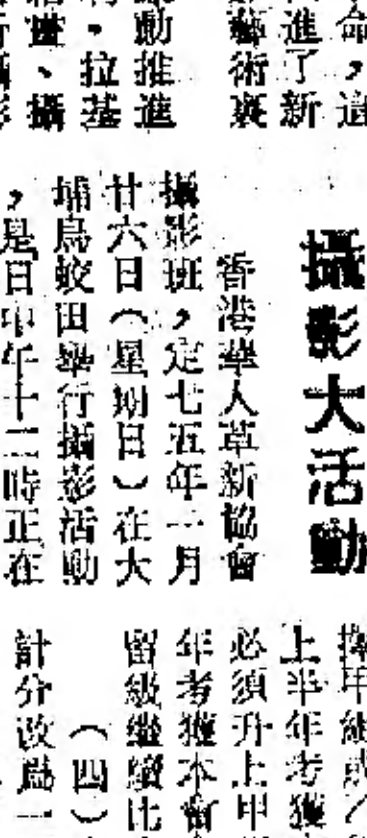 命，這
進了新
藝術裏
動推進
・拉基
、攝
攝影大活動
香港華人革新協會
攝影班，定七五年一月
廿六日（星期日）在大
埔烏蛟田舉行攝影活動
，是日中午十二時正在
上半年考獲
必須升上甲
年考獲本會
留級繼續比
（四）
計分改為一